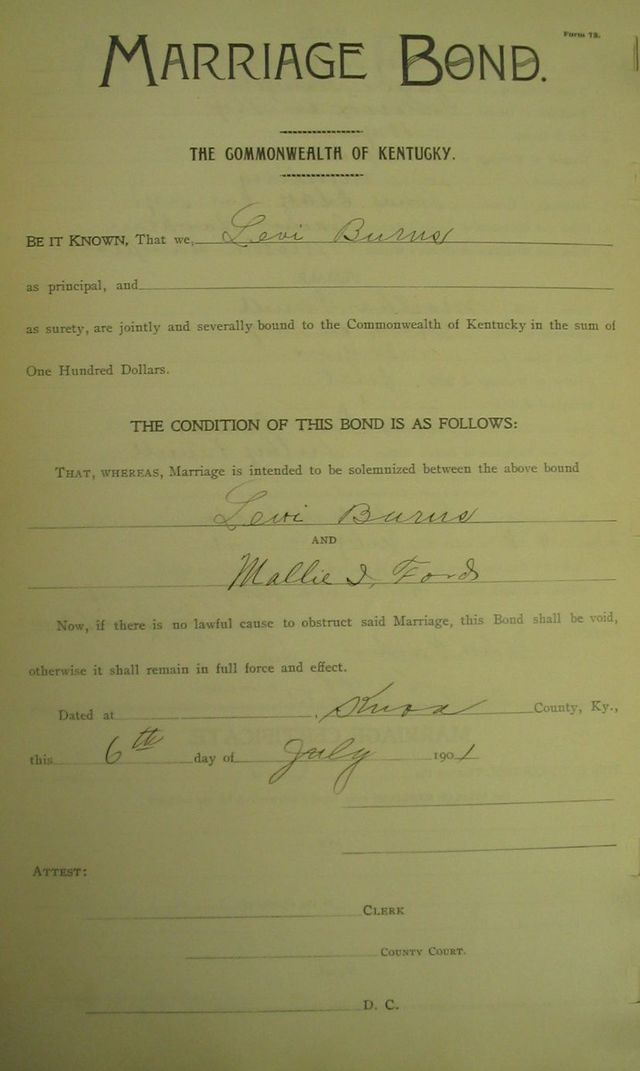 Form 73.
MARRIAGE BOND.
THE COMMONWEALTH OF KENTUCKY.
BE IT KNOWN, That we, Levi Burns
as principal, and
as surety, are jointly and severally bound to the Commonwealth of Kentucky in the sum of
One Hundred Dollars.
THE CONDITION OF THIS BOND IS AS FOLLOWS:
THAT, WHEREAS, Marriage is intended to be solemnized between the above bound
Levi Burns
AND
Mallie I, Ford
Now, if there is no lawful cause to obstruct said Marriage, this Bond shall be void,
otherwise it shall remain in full force and effect.
Dated at , Knox County, Ky.,
this 6th day of July 1901
ATTEST:
CLERK
COUNTY COURT.
D. C.